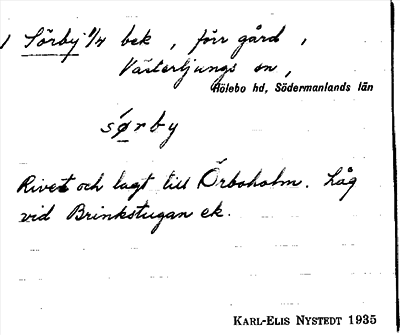 1 Sörby 1/4 bek , förr gård ,
Västerljungs sn ,
Hölebo hd, Södermanlands län
sørby
Rivet och lagt till Örboholm. Låg
vid Brinkstugan ek.
KARL-ELIS NYSTEDT 1935